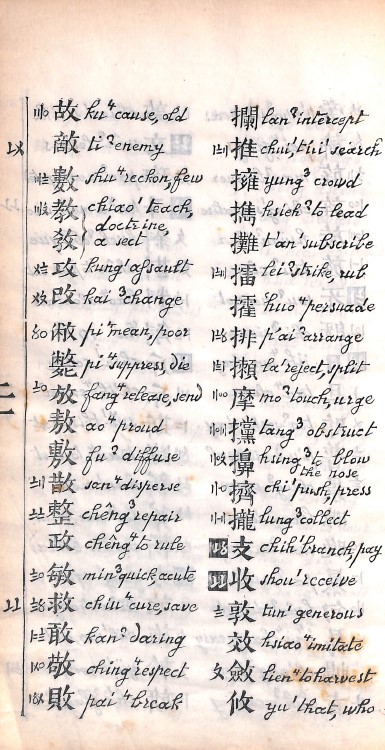 攔 lan² intercept
推 search
擁 yung³ crowd
hsieh² to lead
攤 t'an' subscribe
擂 lei² strike, rub
huo⁴ persuade
排 p'ai² arrange
攋 la' reject, split
摩 mo² touch, urge
攩 tang³ obstruct
擤 hsing³ to blow
the nose
擠 chi' push, press
攏 lung³ collect
支 chih' branch, pay
收 shou' receive
敦 tun' generous
效 hsiao⁴ imitate
斂 lien⁴ to harvest
攸 yu' that, who
故 ku⁴ cause, old
敵 ti² enemy
數 shu⁴ reckon, few
教 chiao⁴ teach,
doctrine,
敎 a sect
攻 kung' assault
改 kai³ change
敝 pi⁴ mean, poor
斃 pi⁴ suppress, die
放 fang⁴ release, send
敖 ao⁴ proud
敷 fu² diffuse
散 san⁴ disperse
整 chêng³ repair
政 chêng⁴ to rule
敏 min³ quick, acute
救 chiu⁴ cure, save
敢 kan³ daring
敬 ching⁴ respect
敗 pai⁴ break